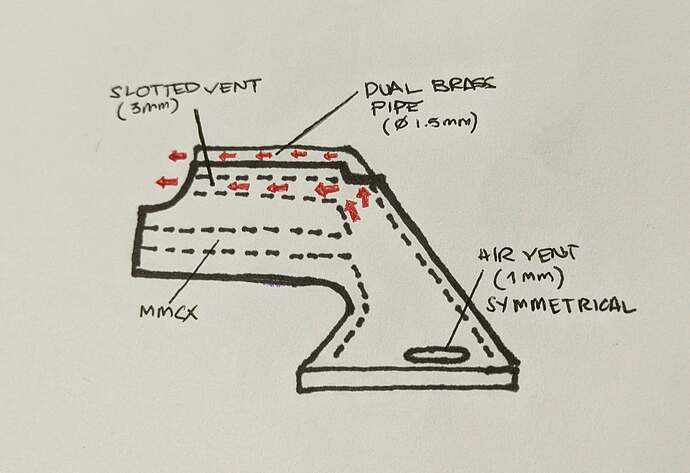 SLOTTED VENT
(3mm)
DUAL BRASS
PIPE
(Ø 1.5mm)
AIR VENT
(1mm)
SYMMETRICAL
MMCX